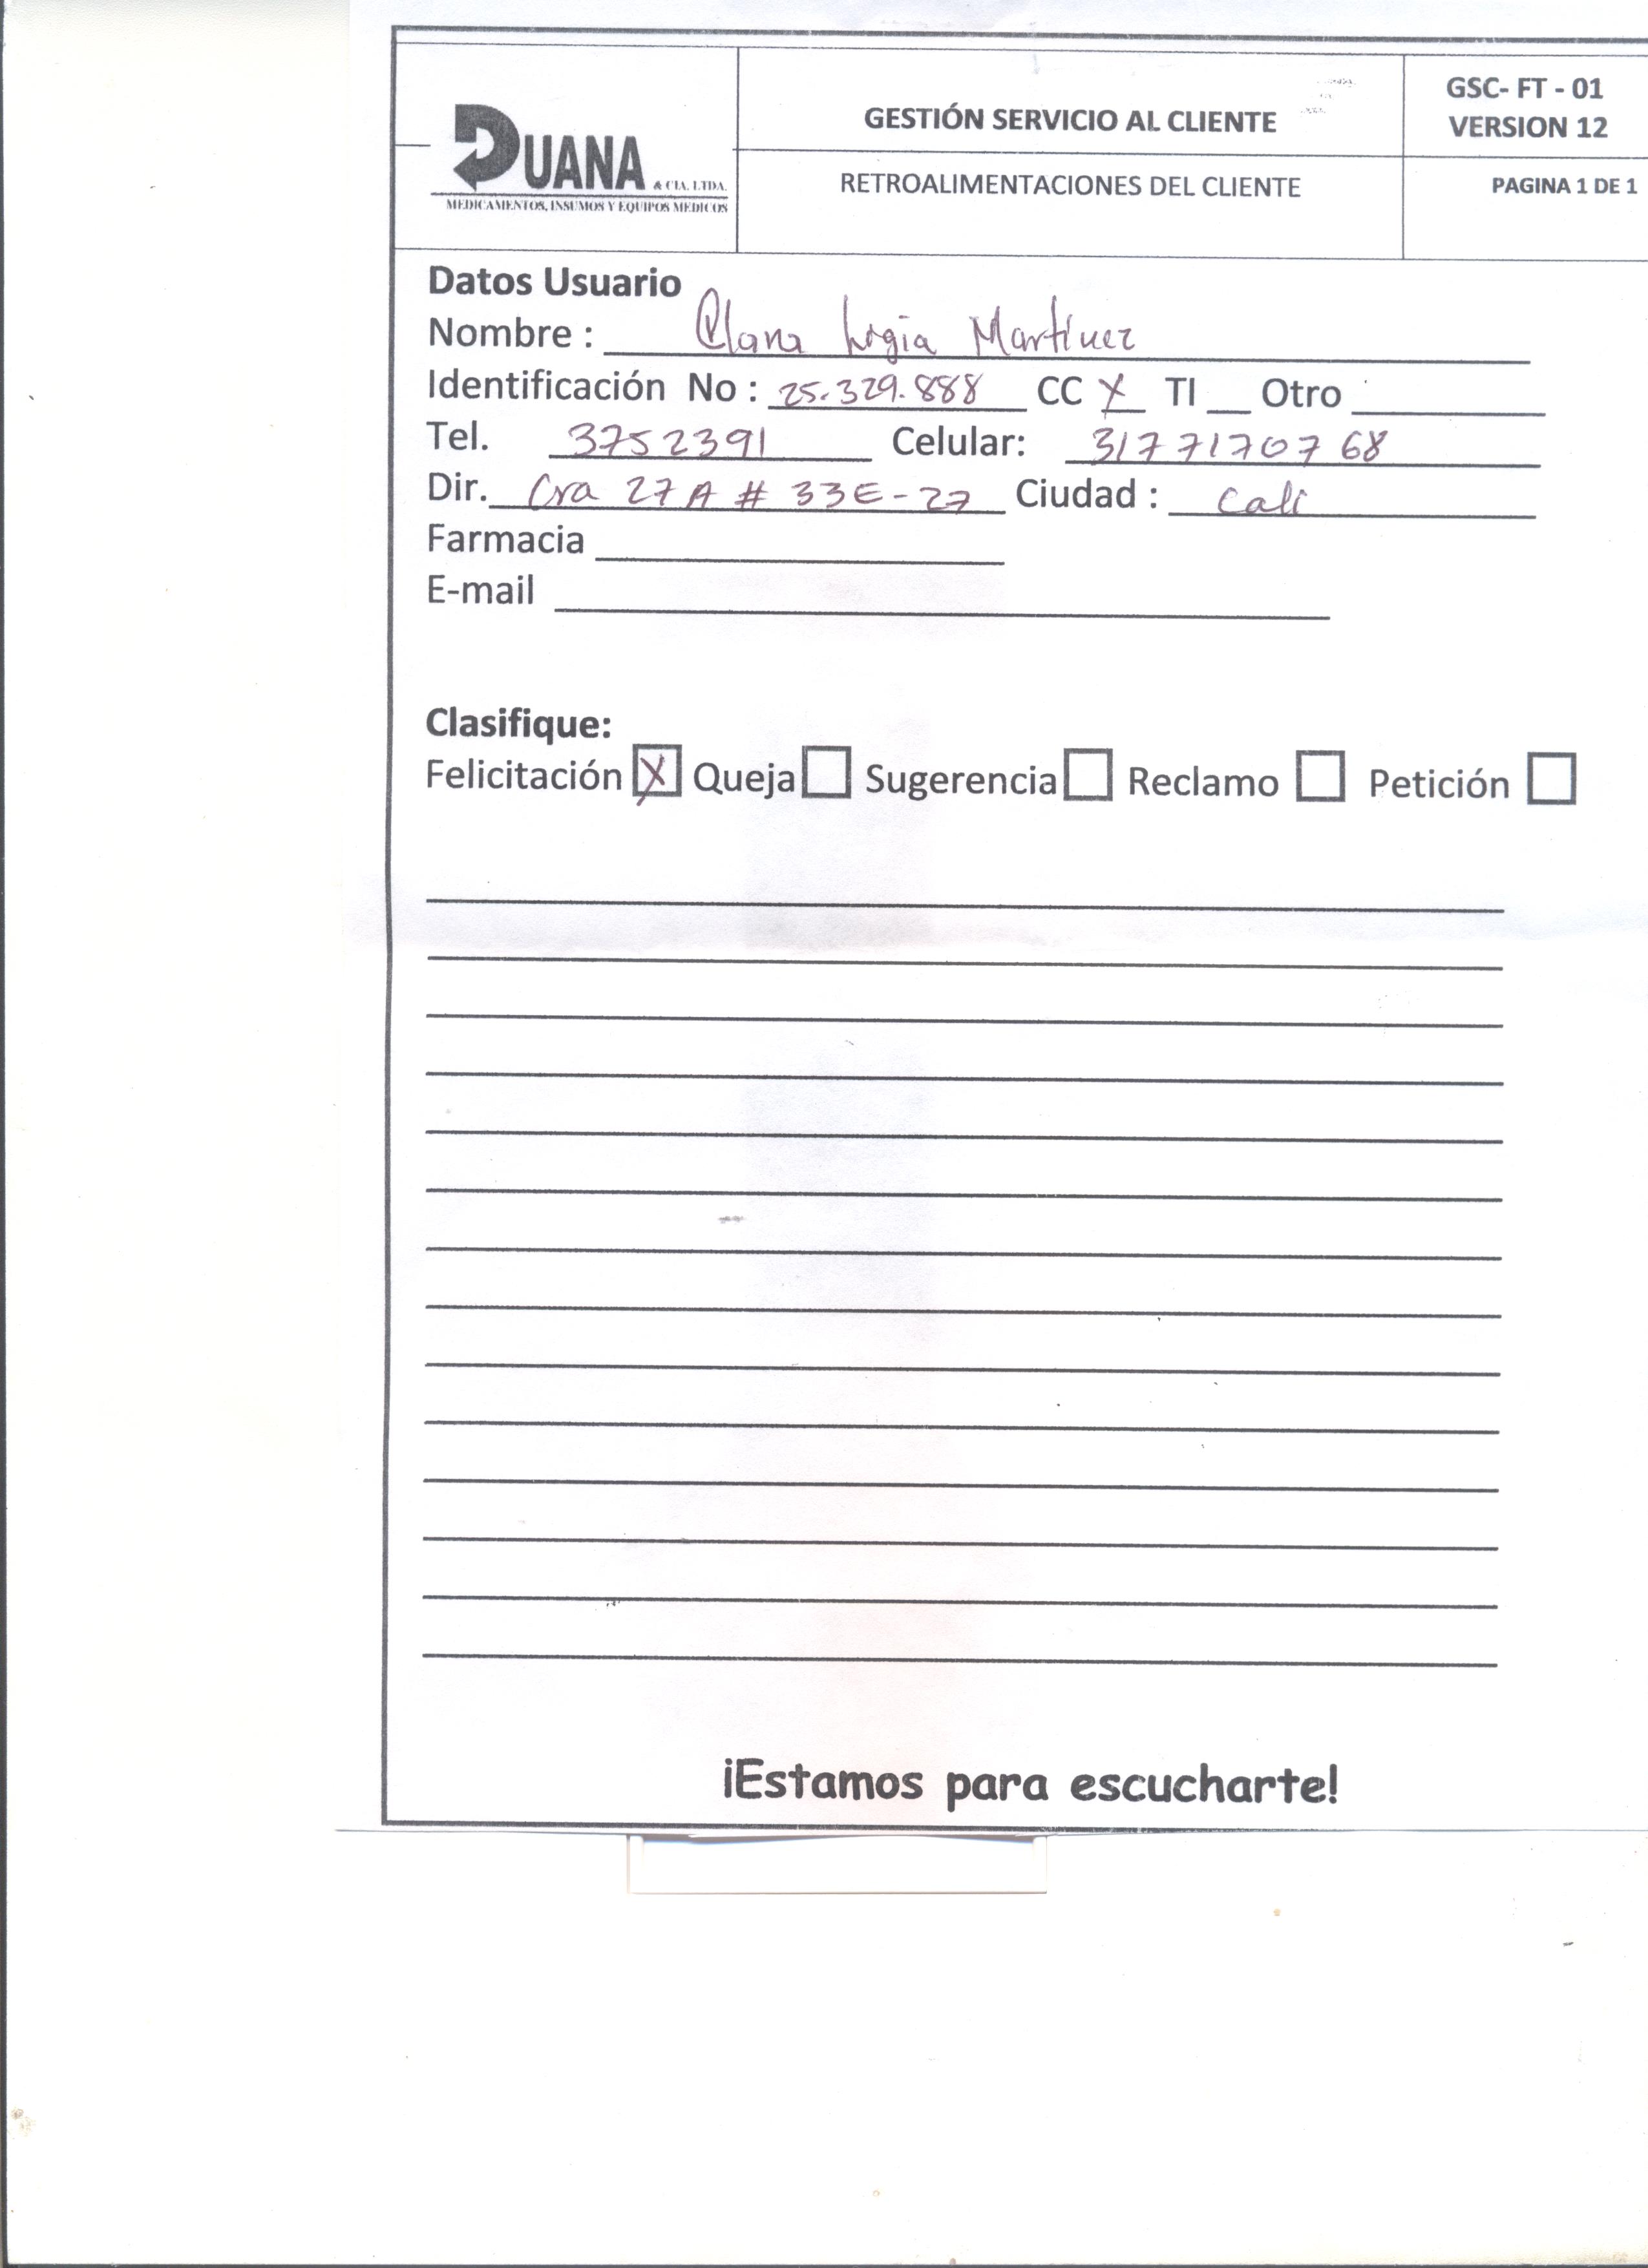 DUANA & CIA. LTDA.
MEDICAMENTOS, INSUMOS Y EQUIPOS MEDICOS
GESTIÓN SERVICIO AL CLIENTE
RETROALIMENTACIONES DEL CLIENTE
GSC- FT - 01
VERSION 12
PAGINA 1 DE 1
Datos Usuario
Nombre : Clara Ligia Martinez
Identificación No : 25.329.888 CC X TI __ Otro
Tel. 3752391 Celular: 3177170768
Dir. Cra 27A # 33E-27 Ciudad : Cali
Farmacia
E-mail
Clasifique:
Felicitación X Queja Sugerencia Reclamo Petición
¡Estamos para escucharte!